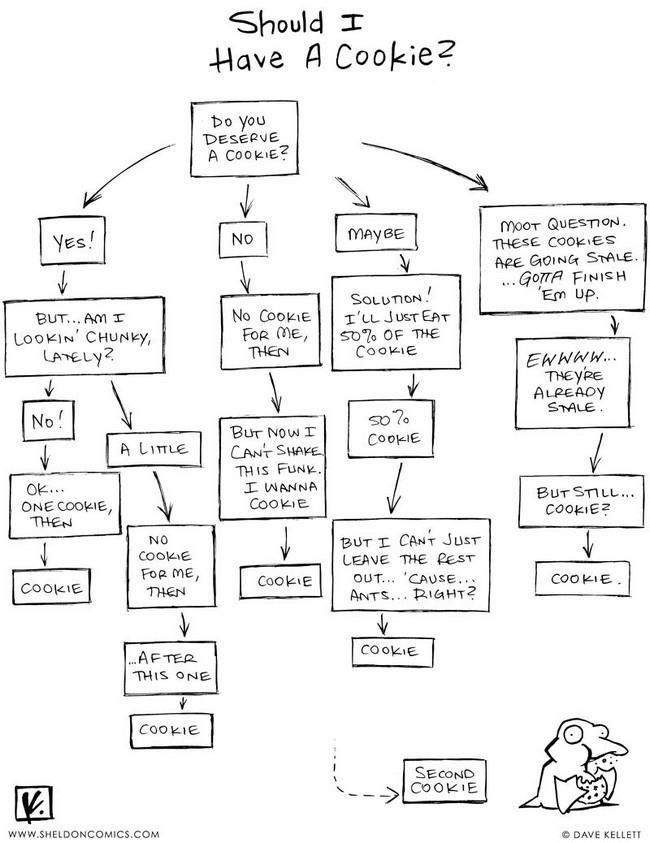 Should I
Have A Cookie?
DO YOU
DESERVE
A COOKIE?
YES!
BUT... AM I
LOOKIN' CHUNKY,
LATELY?
NO!
OK...
ONE COOKIE,
THEN
COOKIE
A LITTLE
NO
COOKIE
FOR ME,
THEN
...AFTER
THIS ONE
COOKIE
NO
NO COOKIE
FOR ME,
THEN
BUT NOW I
CAN'T SHAKE
THIS FUNK.
I WANNA
COOKIE
COOKIE
MAYBE
SOLUTION!
I'LL JUST EAT
50% OF THE
COOKIE
50%
COOKIE
BUT I CAN'T JUST
LEAVE THE REST
OUT... 'CAUSE...
ANTS... RIGHT?
COOKIE
MOOT QUESTION.
THESE COOKIES
ARE GOING STALE.
...GOTTA FINISH
'EM UP.
EWWWW...
THEY'RE
ALREADY
STALE.
BUT STILL...
COOKIE?
COOKIE.
SECOND
COOKIE
WWW.SHELDONCOMICS.COM
© DAVE KELLETT